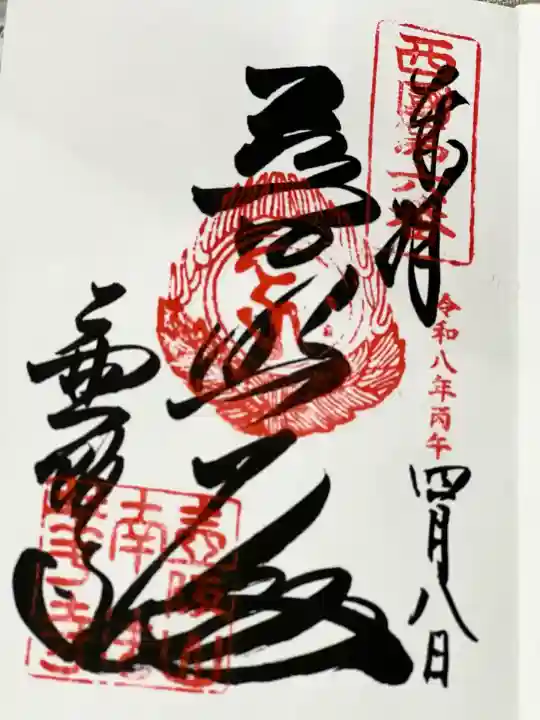 西國第六番
奉拝
令和八年丙午
四月八日
普照殿
壷阪山
南法華寺